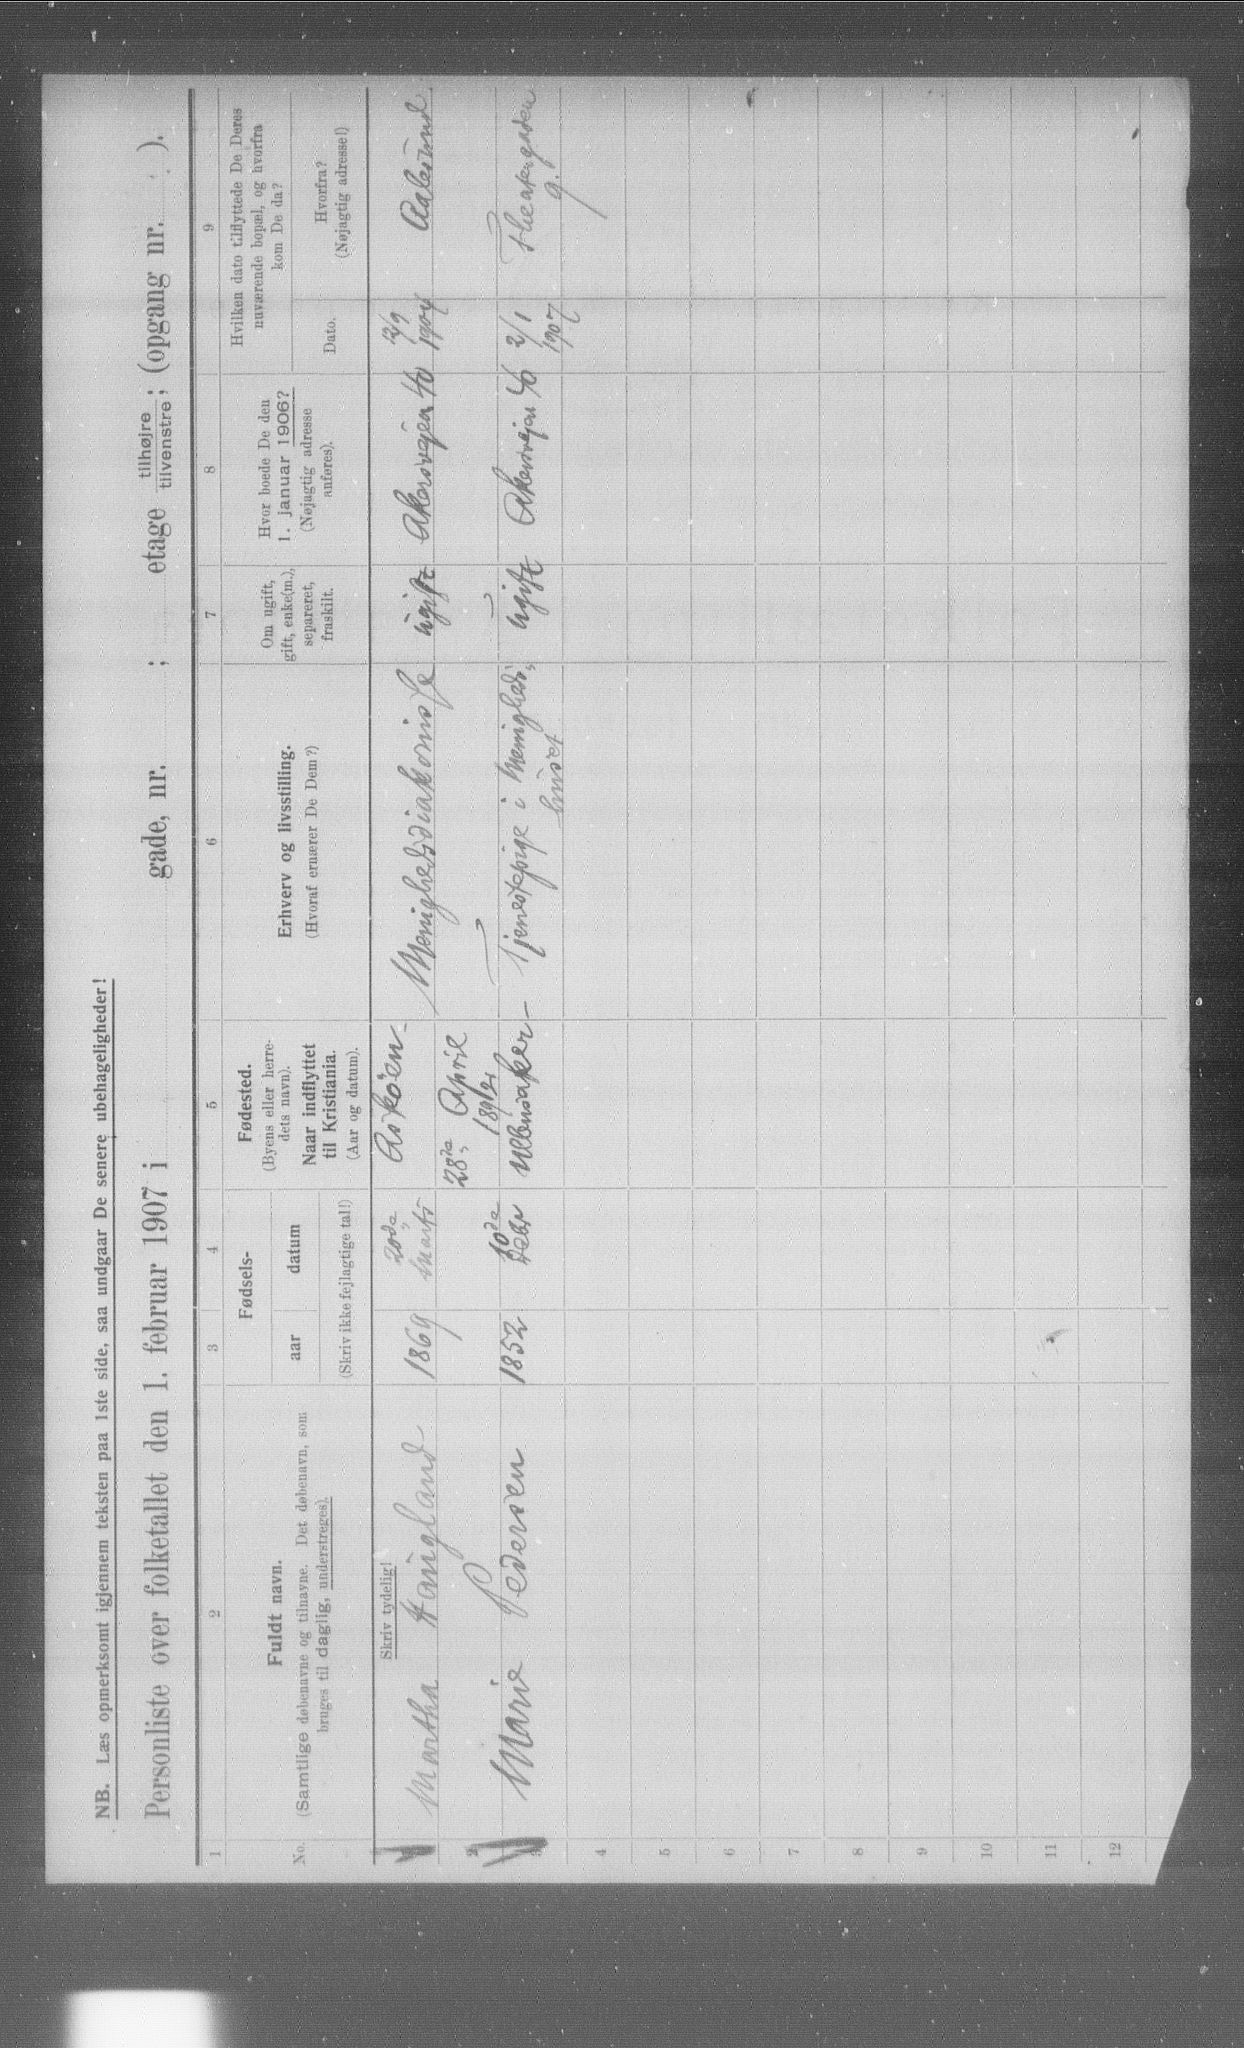 NB. Læs opmerksomt igjennem teksten paa 1ste side, saa undgaar De senere ubehageligheder!
Personliste over folketallet den 1. februar 1907 i gade, nr. ; etage tilhøjre tilvenstre ; (opgang nr. ).
1 2 3 4 5 6 7 8 9
No.
Fuldt navn.
(Samtlige døbenavne og tilnavne. Det døbenavn, som
bruges til daglig, understreges).
Fødsels-
aar datum
(Skriv ikke fejlagtige tal!)
Fødested.
(Byens eller herre-
dets navn).
Naar indflyttet
til Kristiania.
(Aar og datum).
Erhverv og livsstilling.
(Hvoraf ernærer De Dem?)
Om ugift,
gift, enke(m.),
separeret,
fraskilt.
Hvor boede De den
1. januar 1906?
(Nøjagtig adresse
anføres).
Hvilken dato tilflyttede De Deres
nuværende bopæl, og hvorfra
kom De da?
Dato.
Hvorfra?
(Nøjagtig adresse!)
Skriv tydelig!
Martha Haugland 1869 20de Marts Askøen Menighedsdiakonisse ugift Akersvejen 40 12/9 1904 Aalesund.
2 28de April
189
3 Marie Pedersen 1852 10de Debr Ullensaker Tjenestepige i Menigheds-
huset ugift Akersvejen 40 2/1 1907 Theatergaden 9.
4
5
6
7
8
9
10
11
12